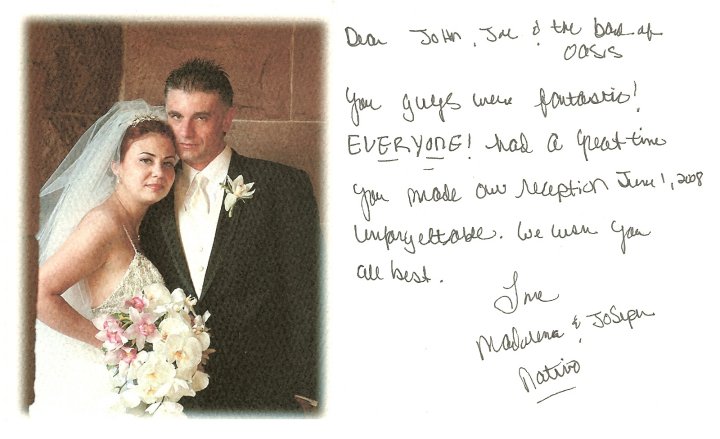 Dear John, Joe & the band of
OASIS
You guys were fantastic!
EVERYONE! had a great time
You made our reception June 1, 2008
unforgettable. We wish you
all best.
Love
Madalena & Joseph
Nativo